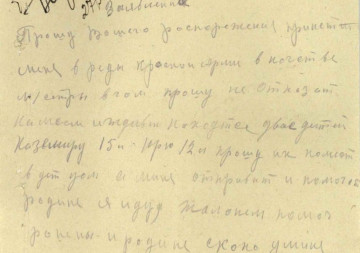 277 Заявление
Прошу Вашего распоряжения принять
меня в ряды красной армии в качестве
м/сестры в том прошу не отказат
На моем иждивен находятся двое детей
Казимиру 15л - Юрию 12л прошу их помест
в дет дом а меня отправит и помоч
родине я иду помоч
раненым и родине скол у меня